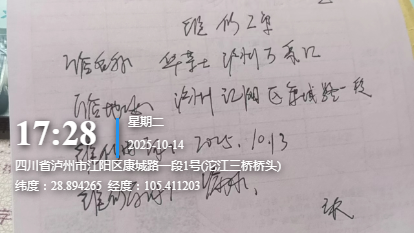 维修工单
店名称 华莱士 泸州万象汇
店地址 泸州 江阳区康城路一段
17:28
星期二
2025-10-14
2025.10.13
四川省泸州市江阳区康城路一段1号(沱江三桥桥头)
纬度：28.894265 经度：105.411203